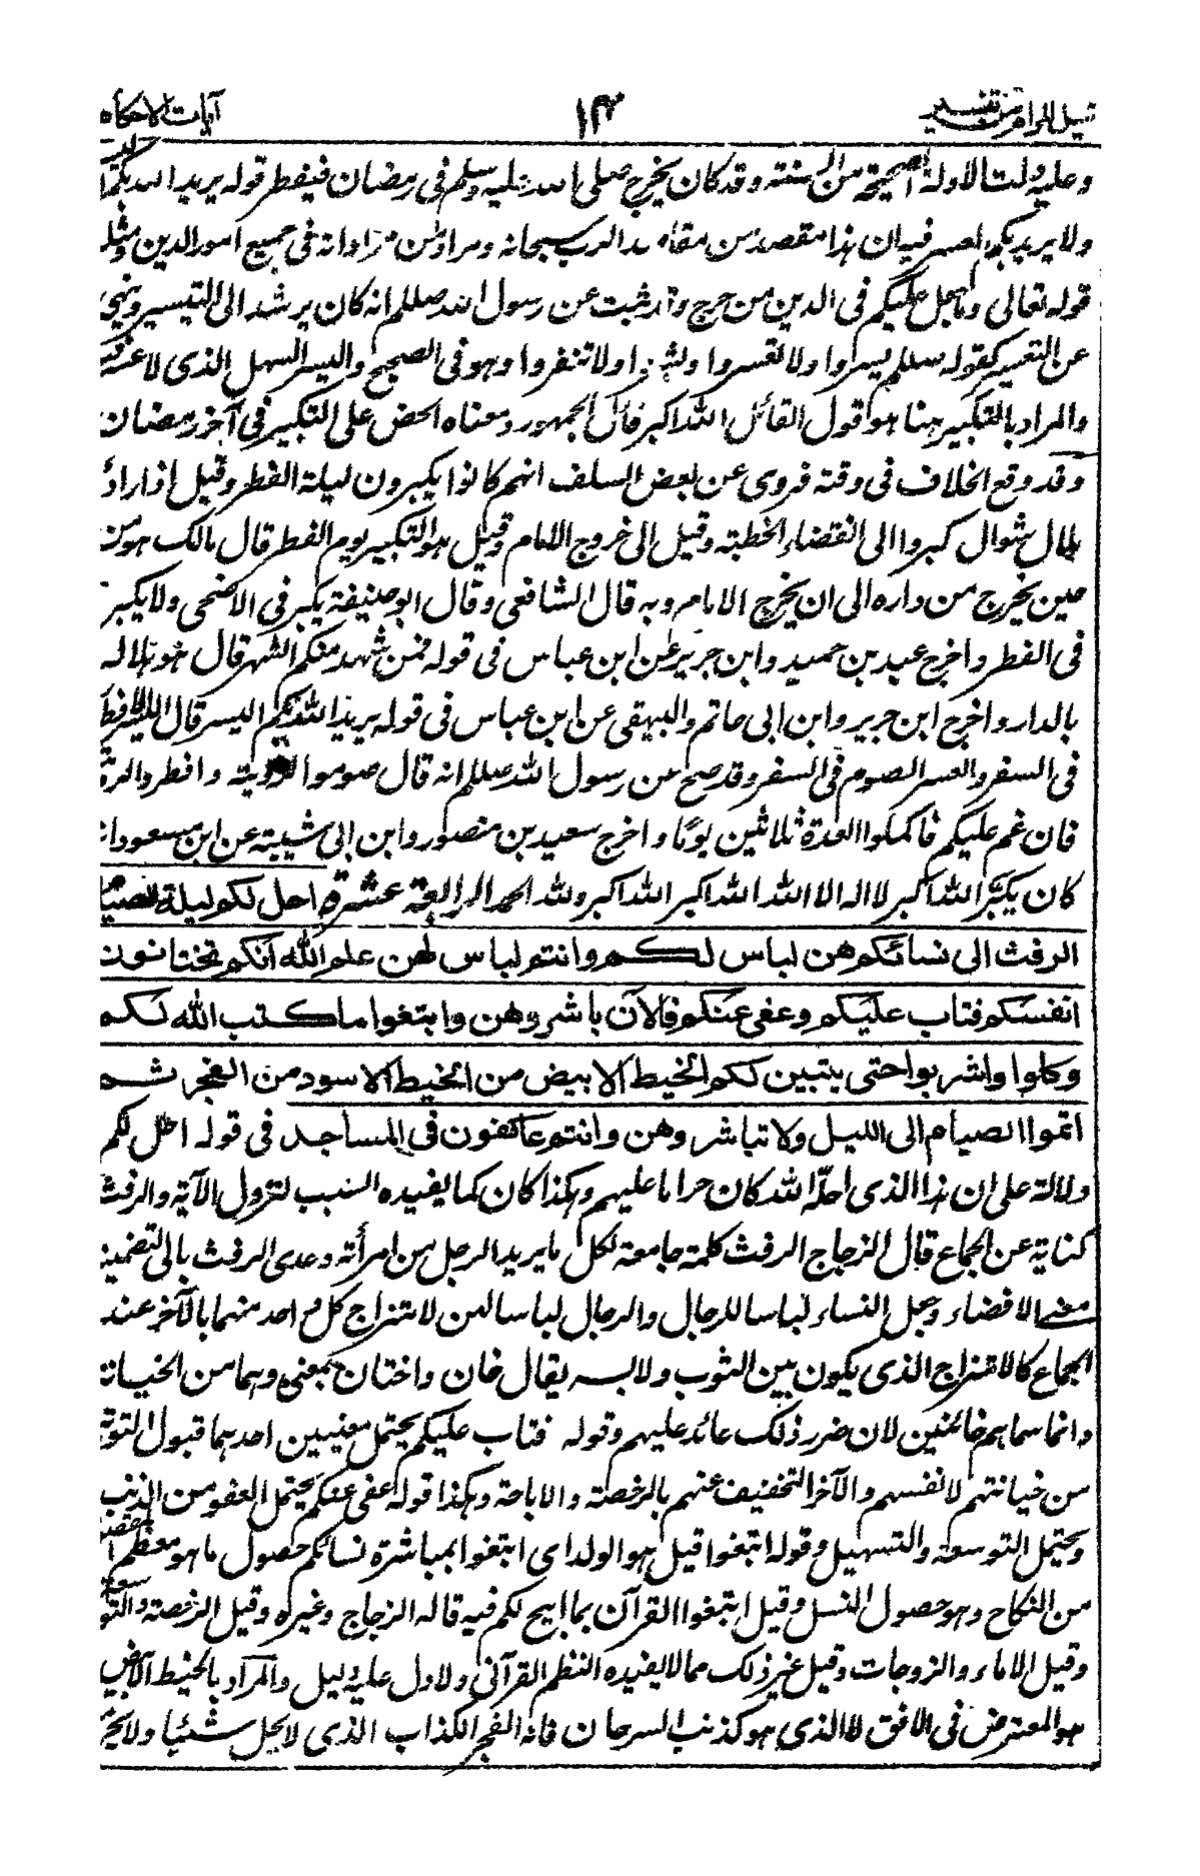 نيل المرام من تفسير ١٣ آيات الاحكام
وعليه دلت الادلة الصحيحة من السنة وقد كان يخرج صلى الله عليه وسلم فى رمضان فيفطر قوله يريد الله بكم اليسر
ولا يريد بكم العسر فيه ان هذا مقصد من مقاصد الرب سبحانه ومراد من مراداته فى جميع امور الدين ومثله
قوله تعالى وما جعل عليكم فى الدين من حرج وقد ثبت عن رسول الله صللم انه كان يرشد الى التيسير وينهى
عن التعسير كقوله صللم يسروا ولا تعسروا وبشروا ولا تنفروا وهو فى الصحيح واليسر السهل الذى لا عسر فيه
والمراد بالتكبير هنا هو قول القائل الله اكبر قال الجمهور ومعناه الحض على التكبير فى آخر رمضان
وقد وقع الخلاف فى وقته فروى عن بعض السلف انهم كانوا يكبرون ليلة الفطر وقيل اذا رأوا
هلال شوال كبروا الى انقضاء الخطبة وقيل الى خروج الامام وقيل هو التكبير يوم الفطر قال مالك هو من
حين يخرج من داره الى ان يخرج الامام وبه قال الشافعى وقال ابو حنيفة يكبر فى الاضحى ولا يكبر
فى الفطر واخرج عبد بن حميد وابن جرير عن ابن عباس فى قوله فمن شهد منكم الشهر قال هو هلاله
بالدار واخرج ابن جرير وابن ابى حاتم والبيهقى عن ابن عباس فى قوله يريد الله بكم اليسر قال اليسر الافطار
فى السفر والعسر الصوم فى السفر وقد صح عن رسول الله صللم انه قال صوموا لرؤيته وافطروا لرؤيته
فان غم عليكم فاكملوا العدة ثلاثين يوما واخرج سعيد بن منصور وابن ابى شيبة عن ابن مسعود انه
كان يكبر الله اكبر لا اله الا الله الله اكبر الله اكبر ولله الحمد الرابعة عشرة احل لكم ليلة الصيام
الرفث الى نسائكم هن لباس لكم وانتم لباس لهن علم الله انكم كنتم تختانون
انفسكم فتاب عليكم وعفى عنكم فالآن باشروهن وابتغوا ما كتب الله لكم
وكلوا واشربوا حتى يتبين لكم الخيط الابيض من الخيط الاسود من الفجر ثم
اتموا الصيام الى الليل ولا تباشروهن وانتم عاكفون فى المساجد فى قوله احل لكم
دلالة على ان هذا الذى احله الله كان حراما عليهم وهكذا كان كما يفيده السبب لنزول الآية والرفث
كناية عن الجماع قال الزجاج الرفث كلمة جامعة لكل ما يريد الرجل من امرأته وعدى الرفث بالى لتضمينه
معنى الافضاء وجعل النساء لباسا للرجال والرجال لباسا لهن لامتزاج كل واحد منهما بالآخر عند
الجماع كالامتزاج الذى يكون بين الثوب ولابسه يقال خان واختان بمعنى وهما من الخيانة
وانما سماهم خائنين لان ضرر ذلك عائد عليهم وقوله فتاب عليكم يحتمل معنيين احدهما قبول التوبة
من خيانتهم لانفسهم والآخر التخفيف عنهم بالرخصة والاباحة وهكذا قوله عفى عنكم يحتمل العفو من الذنب
ويحتمل التوسعة والتسهيل وقوله ابتغوا قيل هو الولد اى ابتغوا بمباشرة نسائكم حصول ما هو معظم المقصود
من النكاح وهو حصول النسل وقيل ابتغوا القرآن بما ابيح لكم فيه قاله الزجاج وغيره وقيل الرخصة والتوسعة
وقيل الاماء والزوجات وقيل غير ذلك مما لا يفيده النظم القرآنى ولا دل عليه دليل والمراد بالخيط الابيض
هو المعترض فى الافق لا الذى هو كذنب السرحان فانه الفجر الكذاب الذى لا يحل شيئا ولا يحرمه